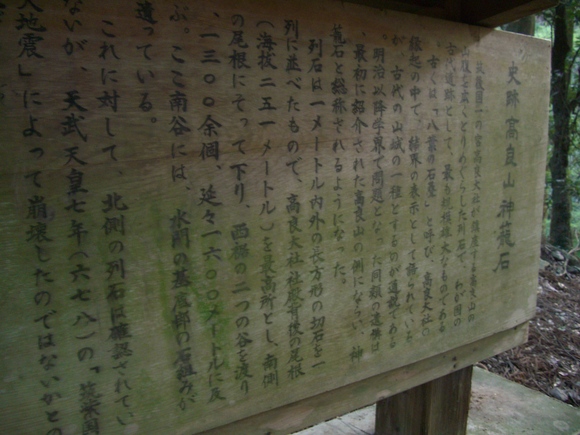 史跡 高良山神籠石
筑後国一の宮高良大社が鎮座する高良山の
古代遺跡として、最も規模雄大なものである
。古くは「八葉の石畳」と呼び、高良大社の
縁起の中で、結界の表示として語られていた
が、古代の山城の一種とするのが通説である
。明治以降学界で問題となった同類の遺跡は
、最初に紹介された高良山の例にならい、神
籠石と総称されるようになった。
列石は一メートル内外の長方形の切石を一
列に並べたもので、高良大社社殿背後の尾根
(海抜二五一メートル)を最高所とし、南側
の尾根にそって下り、西裾の二つの谷を渡り
、一三〇〇余個、延々一六〇〇メートルに及
ぶ。ここ南谷には、水門の基底部の石組みが
遺っている。
これに対して、北側の列石は確認されてい
ないが、天武天皇七年(六七八)の「筑紫国
大地震」によって崩壊したのではないかとの